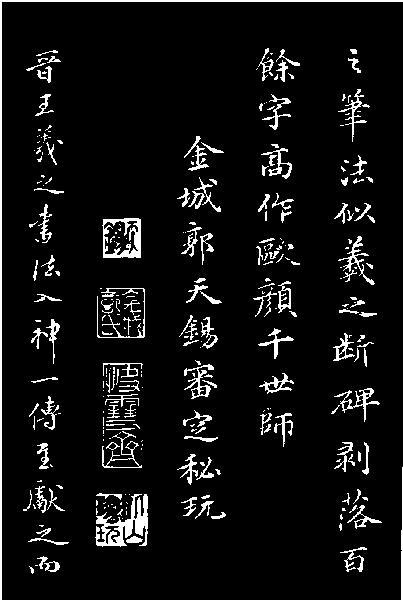 之筆法似羲之断碑剥落百
餘字高作歐顏千世師
金城郭天錫審定秘玩
晉王羲之書法入神一傳至獻之而